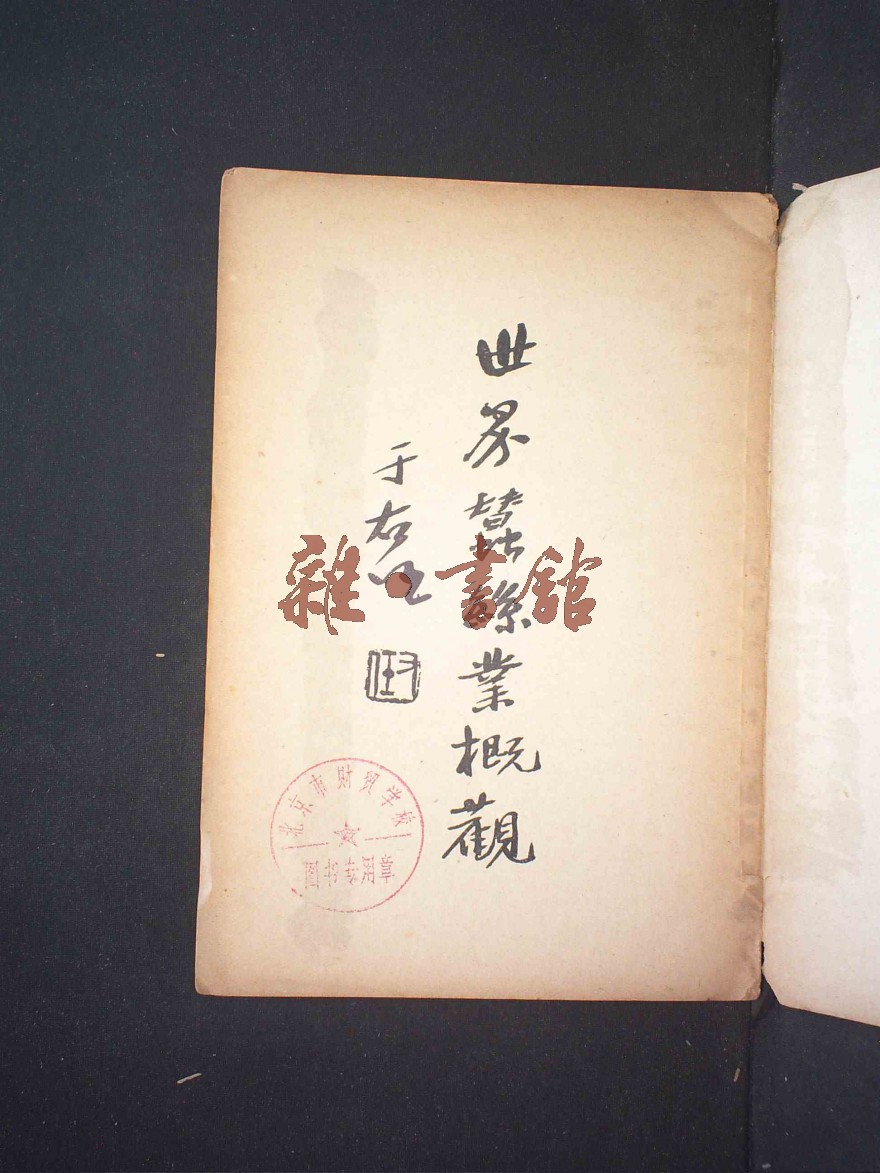 世界蠶絲業概觀
于右任
北京市财贸学校
图书专用章
雜·書館